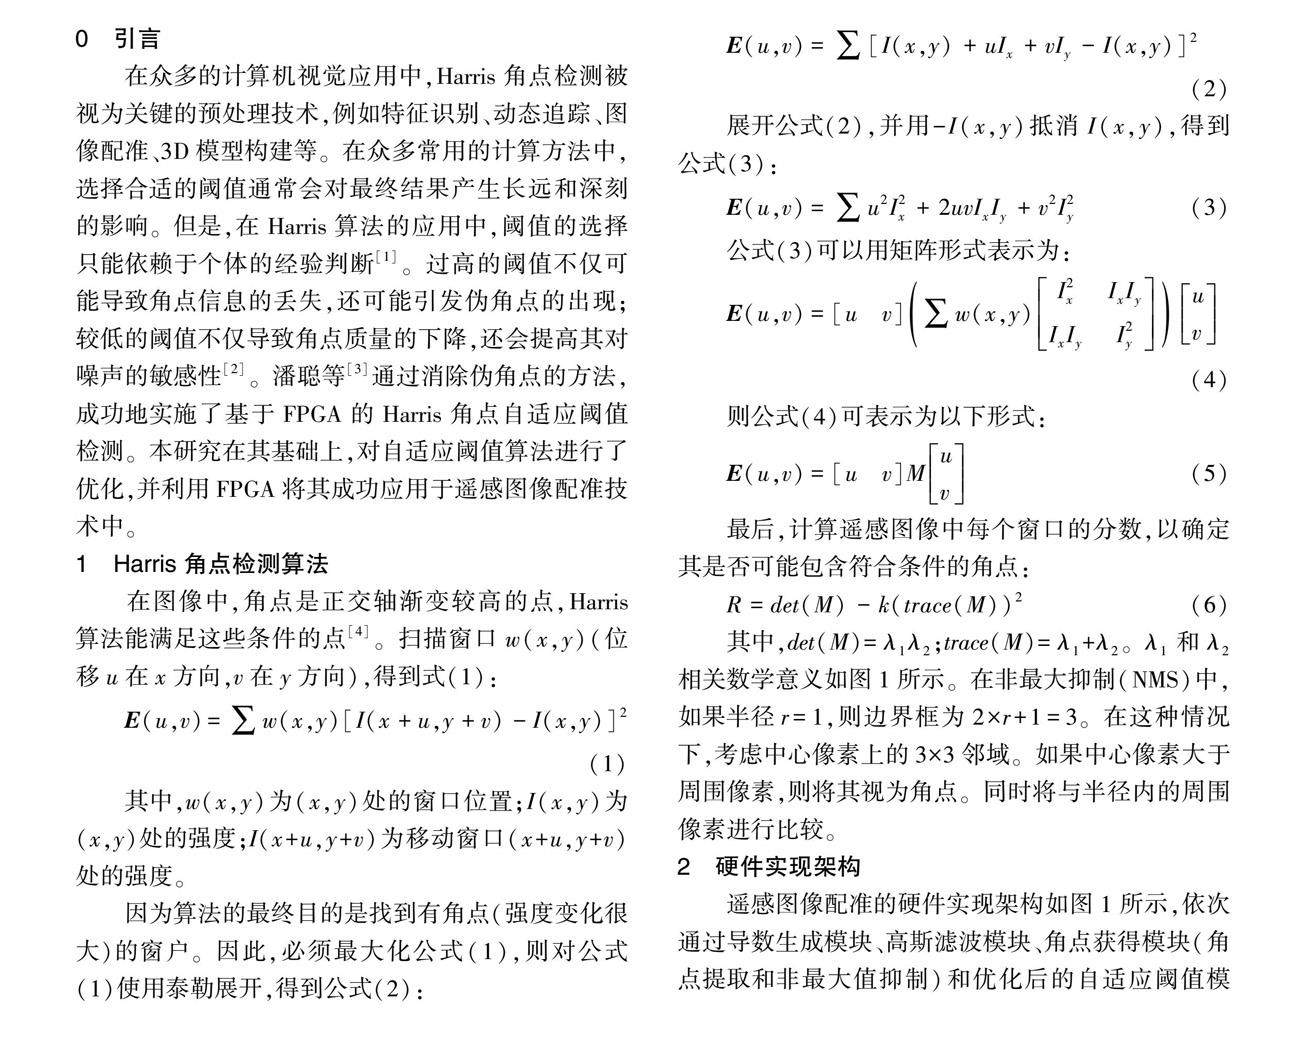 0 引言
在众多的计算机视觉应用中,Harris 角点检测被
视为关键的预处理技术,例如特征识别、动态追踪、图
像配准、3D 模型构建等。在众多常用的计算方法中,
选择合适的阈值通常会对最终结果产生长远和深刻
的影响。但是,在 Harris 算法的应用中,阈值的选择
只能依赖于个体的经验判断[1]。过高的阈值不仅可
能导致角点信息的丢失,还可能引发伪角点的出现;
较低的阈值不仅导致角点质量的下降,还会提高其对
噪声的敏感性[2]。潘聪等[3]通过消除伪角点的方法,
成功地实施了基于 FPGA 的 Harris 角点自适应阈值
检测。本研究在其基础上,对自适应阈值算法进行了
优化,并利用 FPGA 将其成功应用于遥感图像配准技
术中。
1 Harris 角点检测算法
在图像中,角点是正交轴渐变较高的点,Harris
算法能满足这些条件的点[4]。扫描窗口 w(x,y)(位
移 u 在 x 方向,v 在 y 方向),得到式(1):
E(u,v) = ∑ w(x,y)[I(x + u,y + v) − I(x,y)]²
(1)
其中,w(x,y)为(x,y)处的窗口位置;I(x,y)为
(x,y)处的强度;I(x+u,y+v)为移动窗口(x+u,y+v)
处的强度。
因为算法的最终目的是找到有角点(强度变化很
大)的窗户。因此,必须最大化公式(1),则对公式
(1)使用泰勒展开,得到公式(2):
E(u,v) = ∑ [I(x,y) + uIₓ + vI_y − I(x,y)]²
(2)
展开公式(2),并用−I(x,y)抵消 I(x,y),得到
公式(3):
E(u,v) = ∑ u²Iₓ² + 2uvIₓI_y + v²I_y² (3)
公式(3)可以用矩阵形式表示为:
E(u,v) = [u v](∑ w(x,y)[Iₓ² IₓI_y; IₓI_y I_y²])[u; v]
(4)
则公式(4)可表示为以下形式:
E(u,v) = [u v]M[u; v] (5)
最后,计算遥感图像中每个窗口的分数,以确定
其是否可能包含符合条件的角点:
R = det(M) − k(trace(M))² (6)
其中,det(M)= λ₁λ₂;trace(M)= λ₁+λ₂。λ₁ 和 λ₂
相关数学意义如图 1 所示。在非最大抑制(NMS)中,
如果半径 r=1,则边界框为 2×r+1=3。在这种情况
下,考虑中心像素上的 3×3 邻域。如果中心像素大于
周围像素,则将其视为角点。同时将与半径内的周围
像素进行比较。
2 硬件实现架构
遥感图像配准的硬件实现架构如图 1 所示,依次
通过导数生成模块、高斯滤波模块、角点获得模块(角
点提取和非最大值抑制)和优化后的自适应阈值模